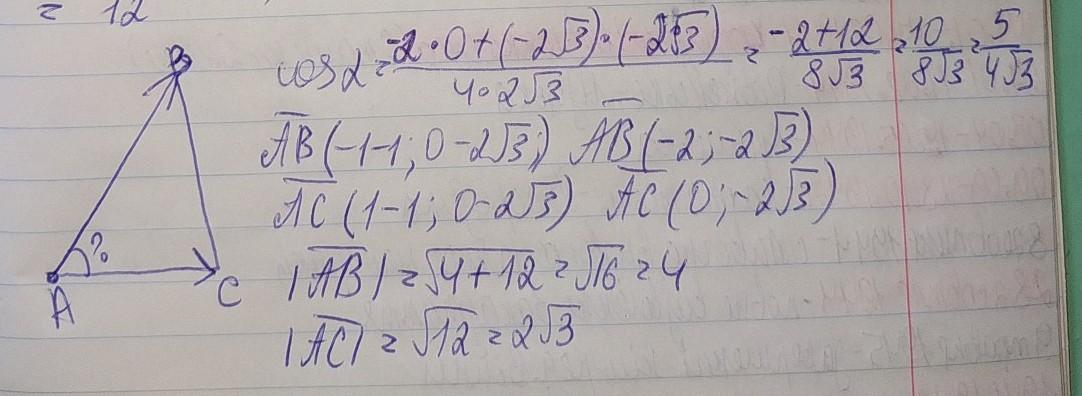 = 12
cos α = \frac{-2·0+(-2√3)·(-2√3)}{4·2√3} = \frac{-2+12}{8√3} = \frac{10}{8√3} = \frac{5}{4√3}
B
\overline{AB}(-1-1; 0-2√3;) \overline{AB}(-2; -2√3)
\overline{AC}(1-1; 0-2√3) \overline{AC}(0; -2√3)
?
A
C
|\overline{AB}| = √4+12 = √16 = 4
|\overline{AC}| = √12 = 2√3